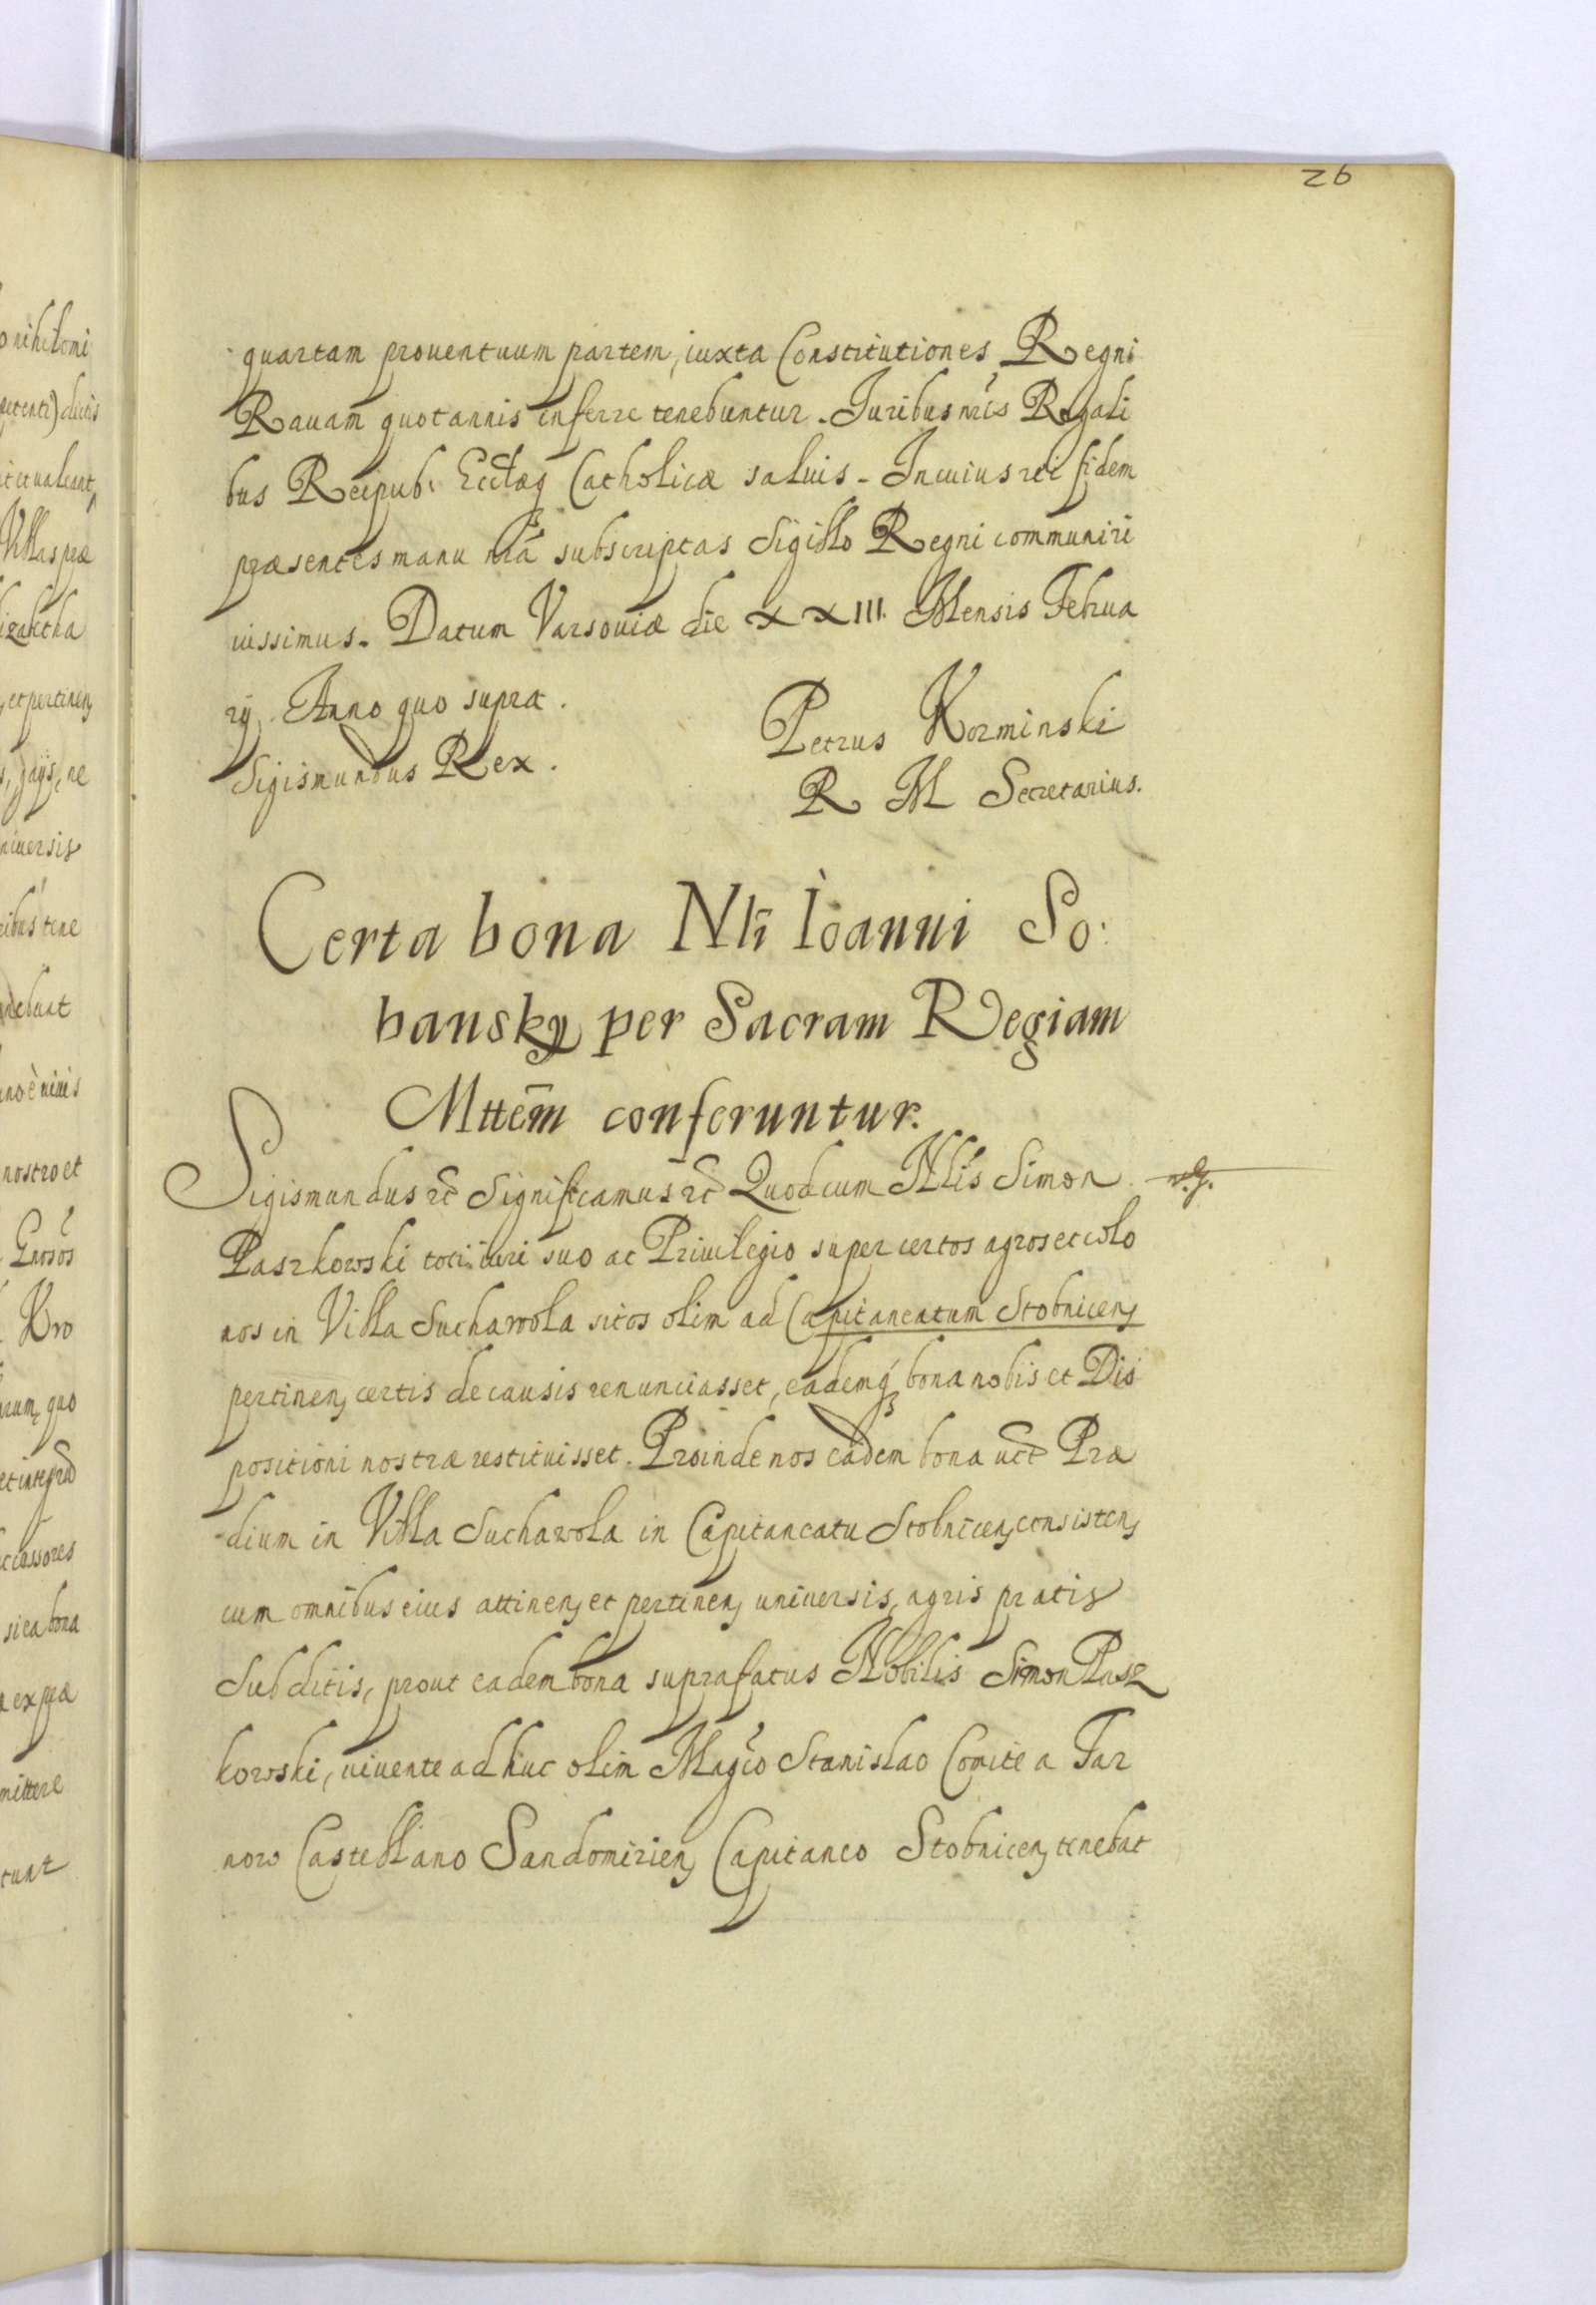 26
quartam prouentuum partem, iuxta Constitutiones Regni
Rauam quotannis inferre tenebuntur. Juribus nr̃is Regali
bus Reipub: Ecclæq Catholicæ saluis. In cuius rei fidem
præsentes manu nr̃a subscriptas Sigillo Regni communiri
iussimus. Datum Varsouiæ die XXIII. Mensis Februa
rij Anno quo supra.
Sigismundus Rex.
Petrus Korminski
R M Secretarius.
Certa bona Nli Ioanni So:
bansky per Sacram Regiam
Mttem̃ conferuntur.
Sigismundus etc̃ Significamus etc̃ Quod cum Nlis Simon
Paszkowski toti iuri suo ac Priuilegio super certos agros et colo
nos in Villa Suchawola sitos olim ad Capitaneatum Stobnicen,
pertinen, certis de causis renunciasset, eademq́ bona nobis et Dis
positioni nostræ restituisset. Proinde nos eadem bona uct Præ
dium in Villa Suchawola in Capitaneatu Stobnicen, consisten,
cum omnibus eius attinen, et pertinen, uniuersis, agris pratis
Subditis, prout eadem bona suprafatus Nobilis Simon Pasz
kowski, uiuente adhuc olim Magco Stanislao Comite a Tar
now Castellano Sandomirien, Capitaneo Stobnicen, tenebat